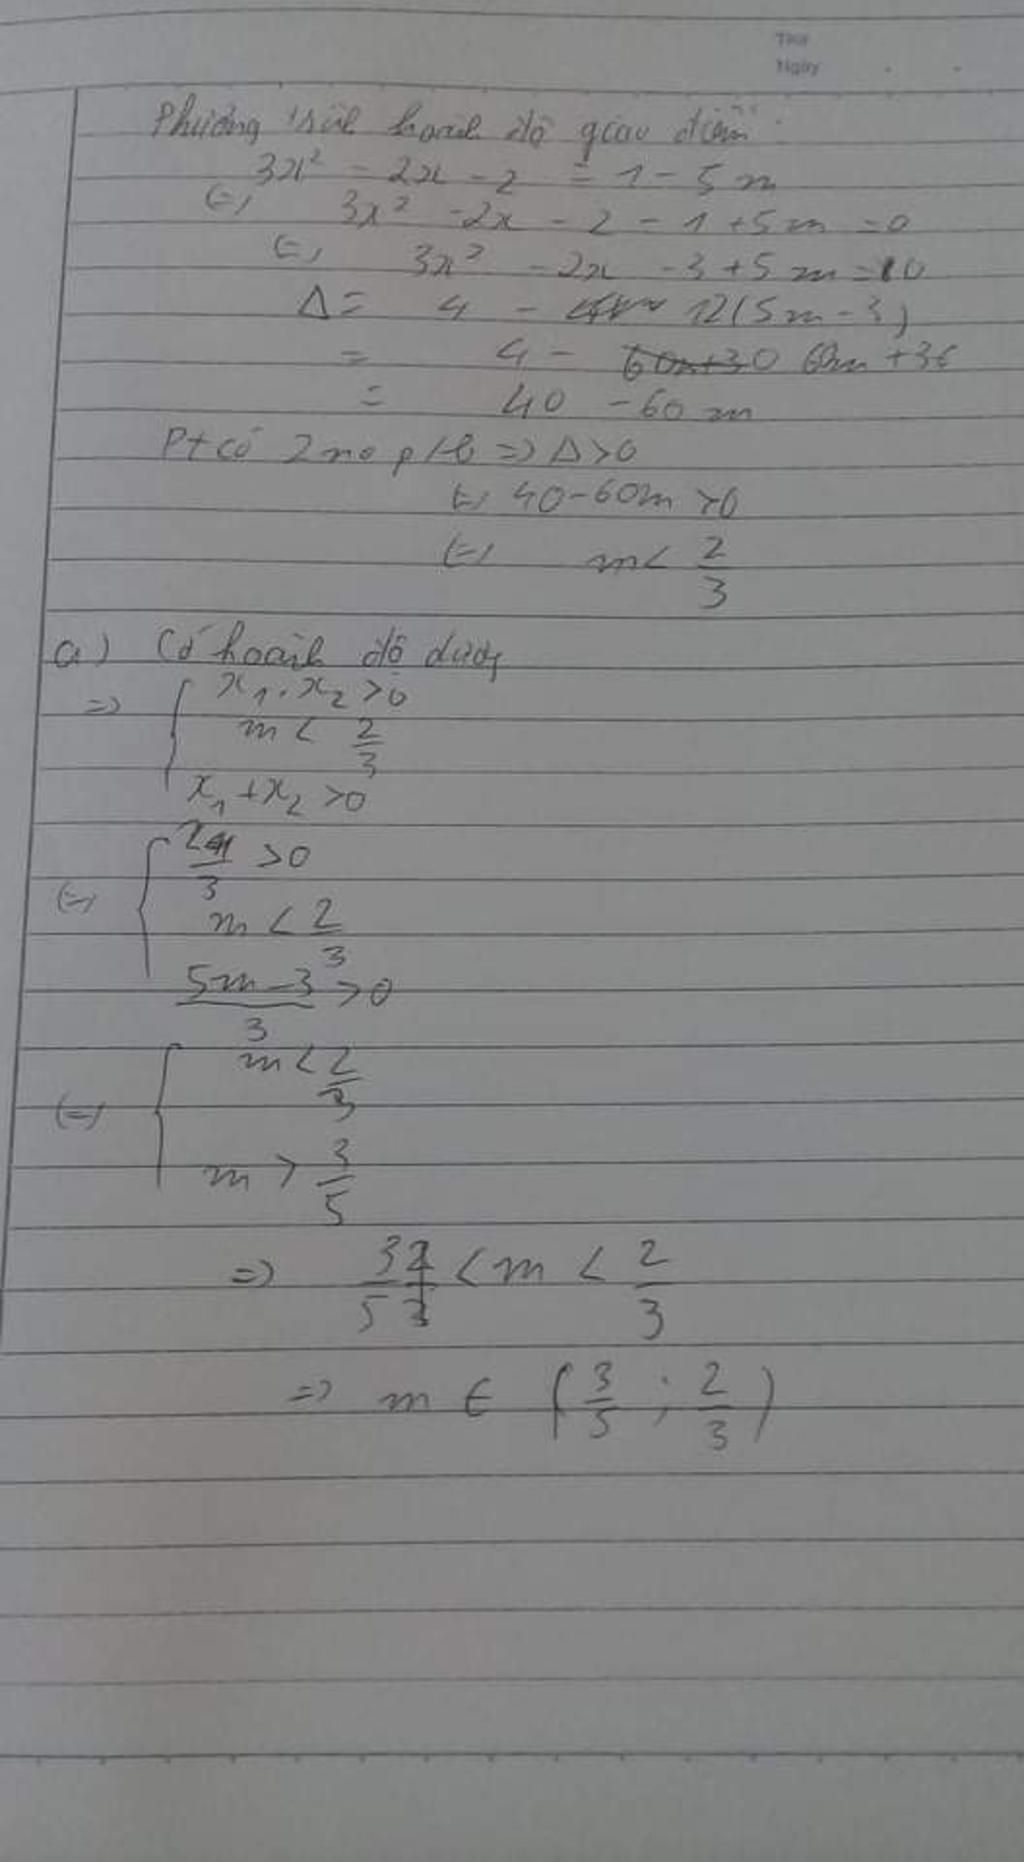 Thứ
Ngày
Phương trình hoành độ giao điểm:
3x² - 2x - 2 = 1 - 5m
(=) 3x² - 2x - 2 - 1 + 5m = 0
(=) 3x² - 2x - 3 + 5m = 0
Δ = 4 - 12(5m - 3)
= 4 - 60m + 36
= 40 - 60m
Pt có 2 no p/b => Δ > 0
(=) 40 - 60m > 0
(=) m < 2/3
a) Có hoành độ dương
=> { x₁.x₂ > 0
m < 2/3
x₁ + x₂ > 0
(=) { 2/3 > 0
m < 2/3
(5m - 3)/3 > 0
(=) { m < 2/3
m > 3/5
=> 3/5 < m < 2/3
=> m ∈ (3/5 ; 2/3)